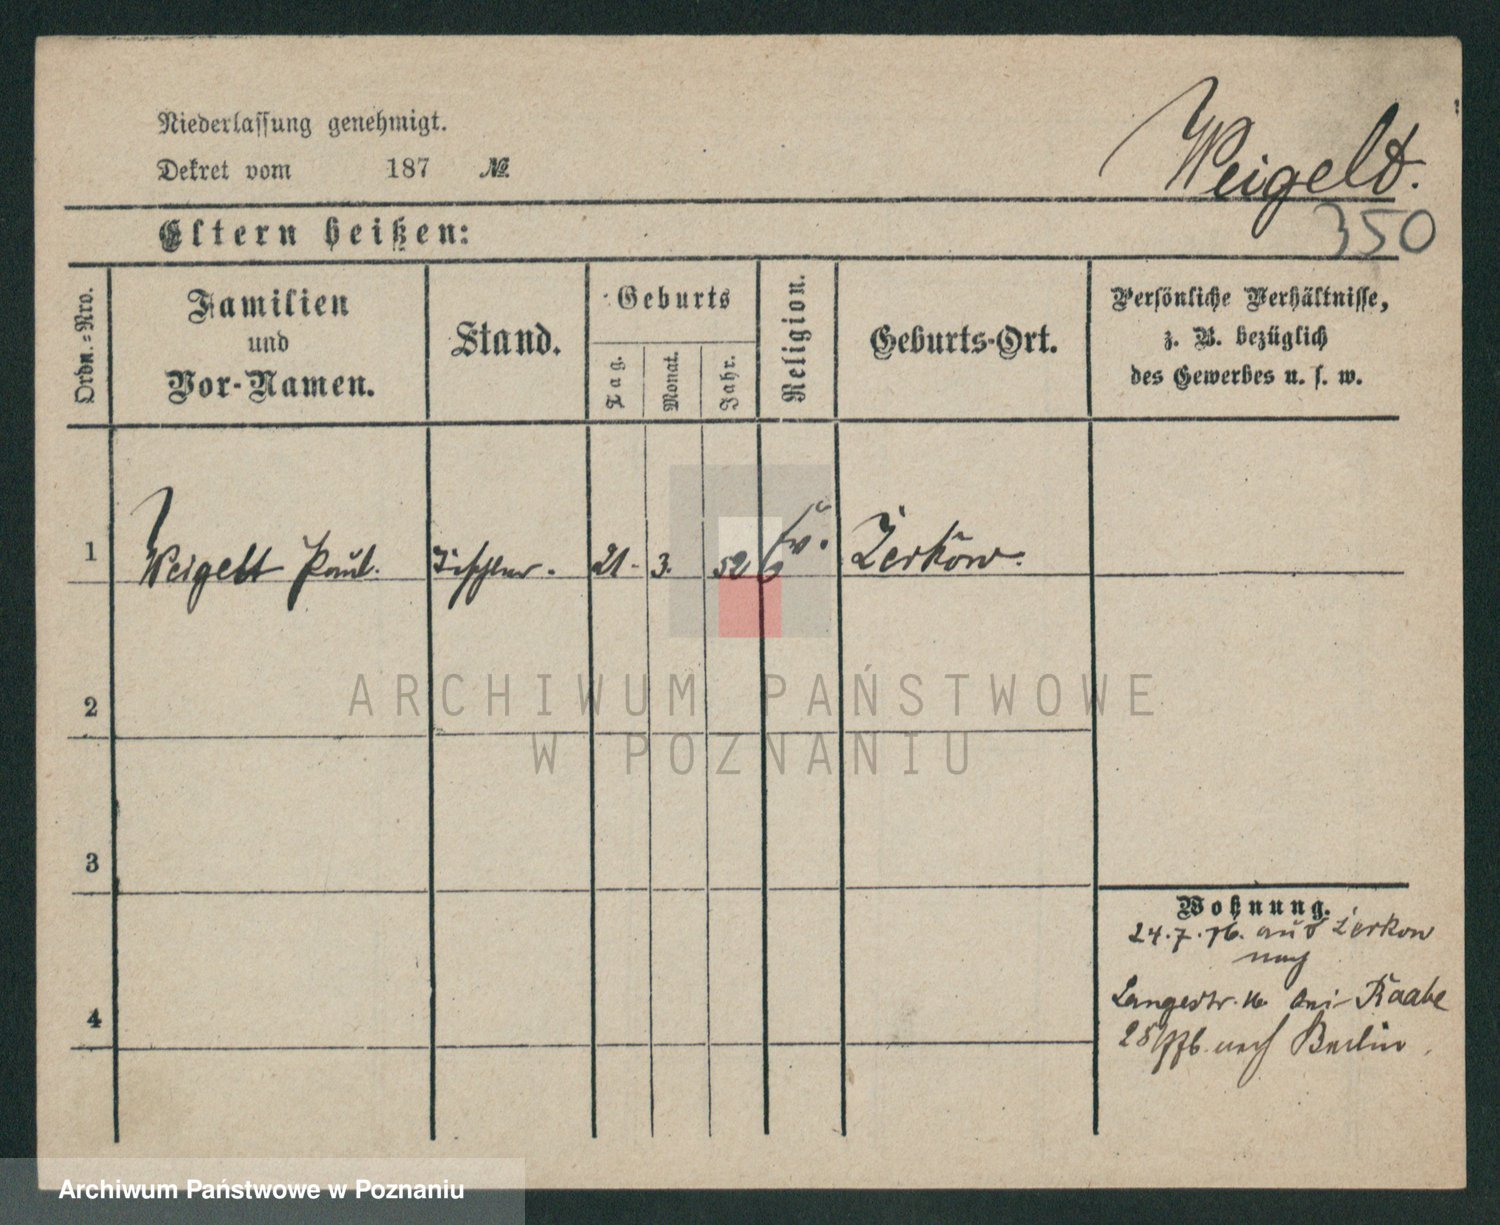 Niederlassung genehmigt.
Dekret vom 187 №
Weigelt.
350
Eltern heißen:
Ordn.-Nro.
Familien
und
Vor-Namen.
Stand.
Geburts
Tag.
Monat.
Jahr.
Religion.
Geburts-Ort.
Persönliche Verhältnisse,
z. B. bezüglich
des Gewerbes u. s. w.
1 Weigelt Paul. Tischler. 21. 3. 52 Zerkow.
2
3
4
Wohnung.
24.7.76. aus Zerkow
nach
Langestr. bei Raabe
nach Berlin.
ARCHIWUM PAŃSTWOWE
W POZNANIU
Archiwum Państwowe w Poznaniu